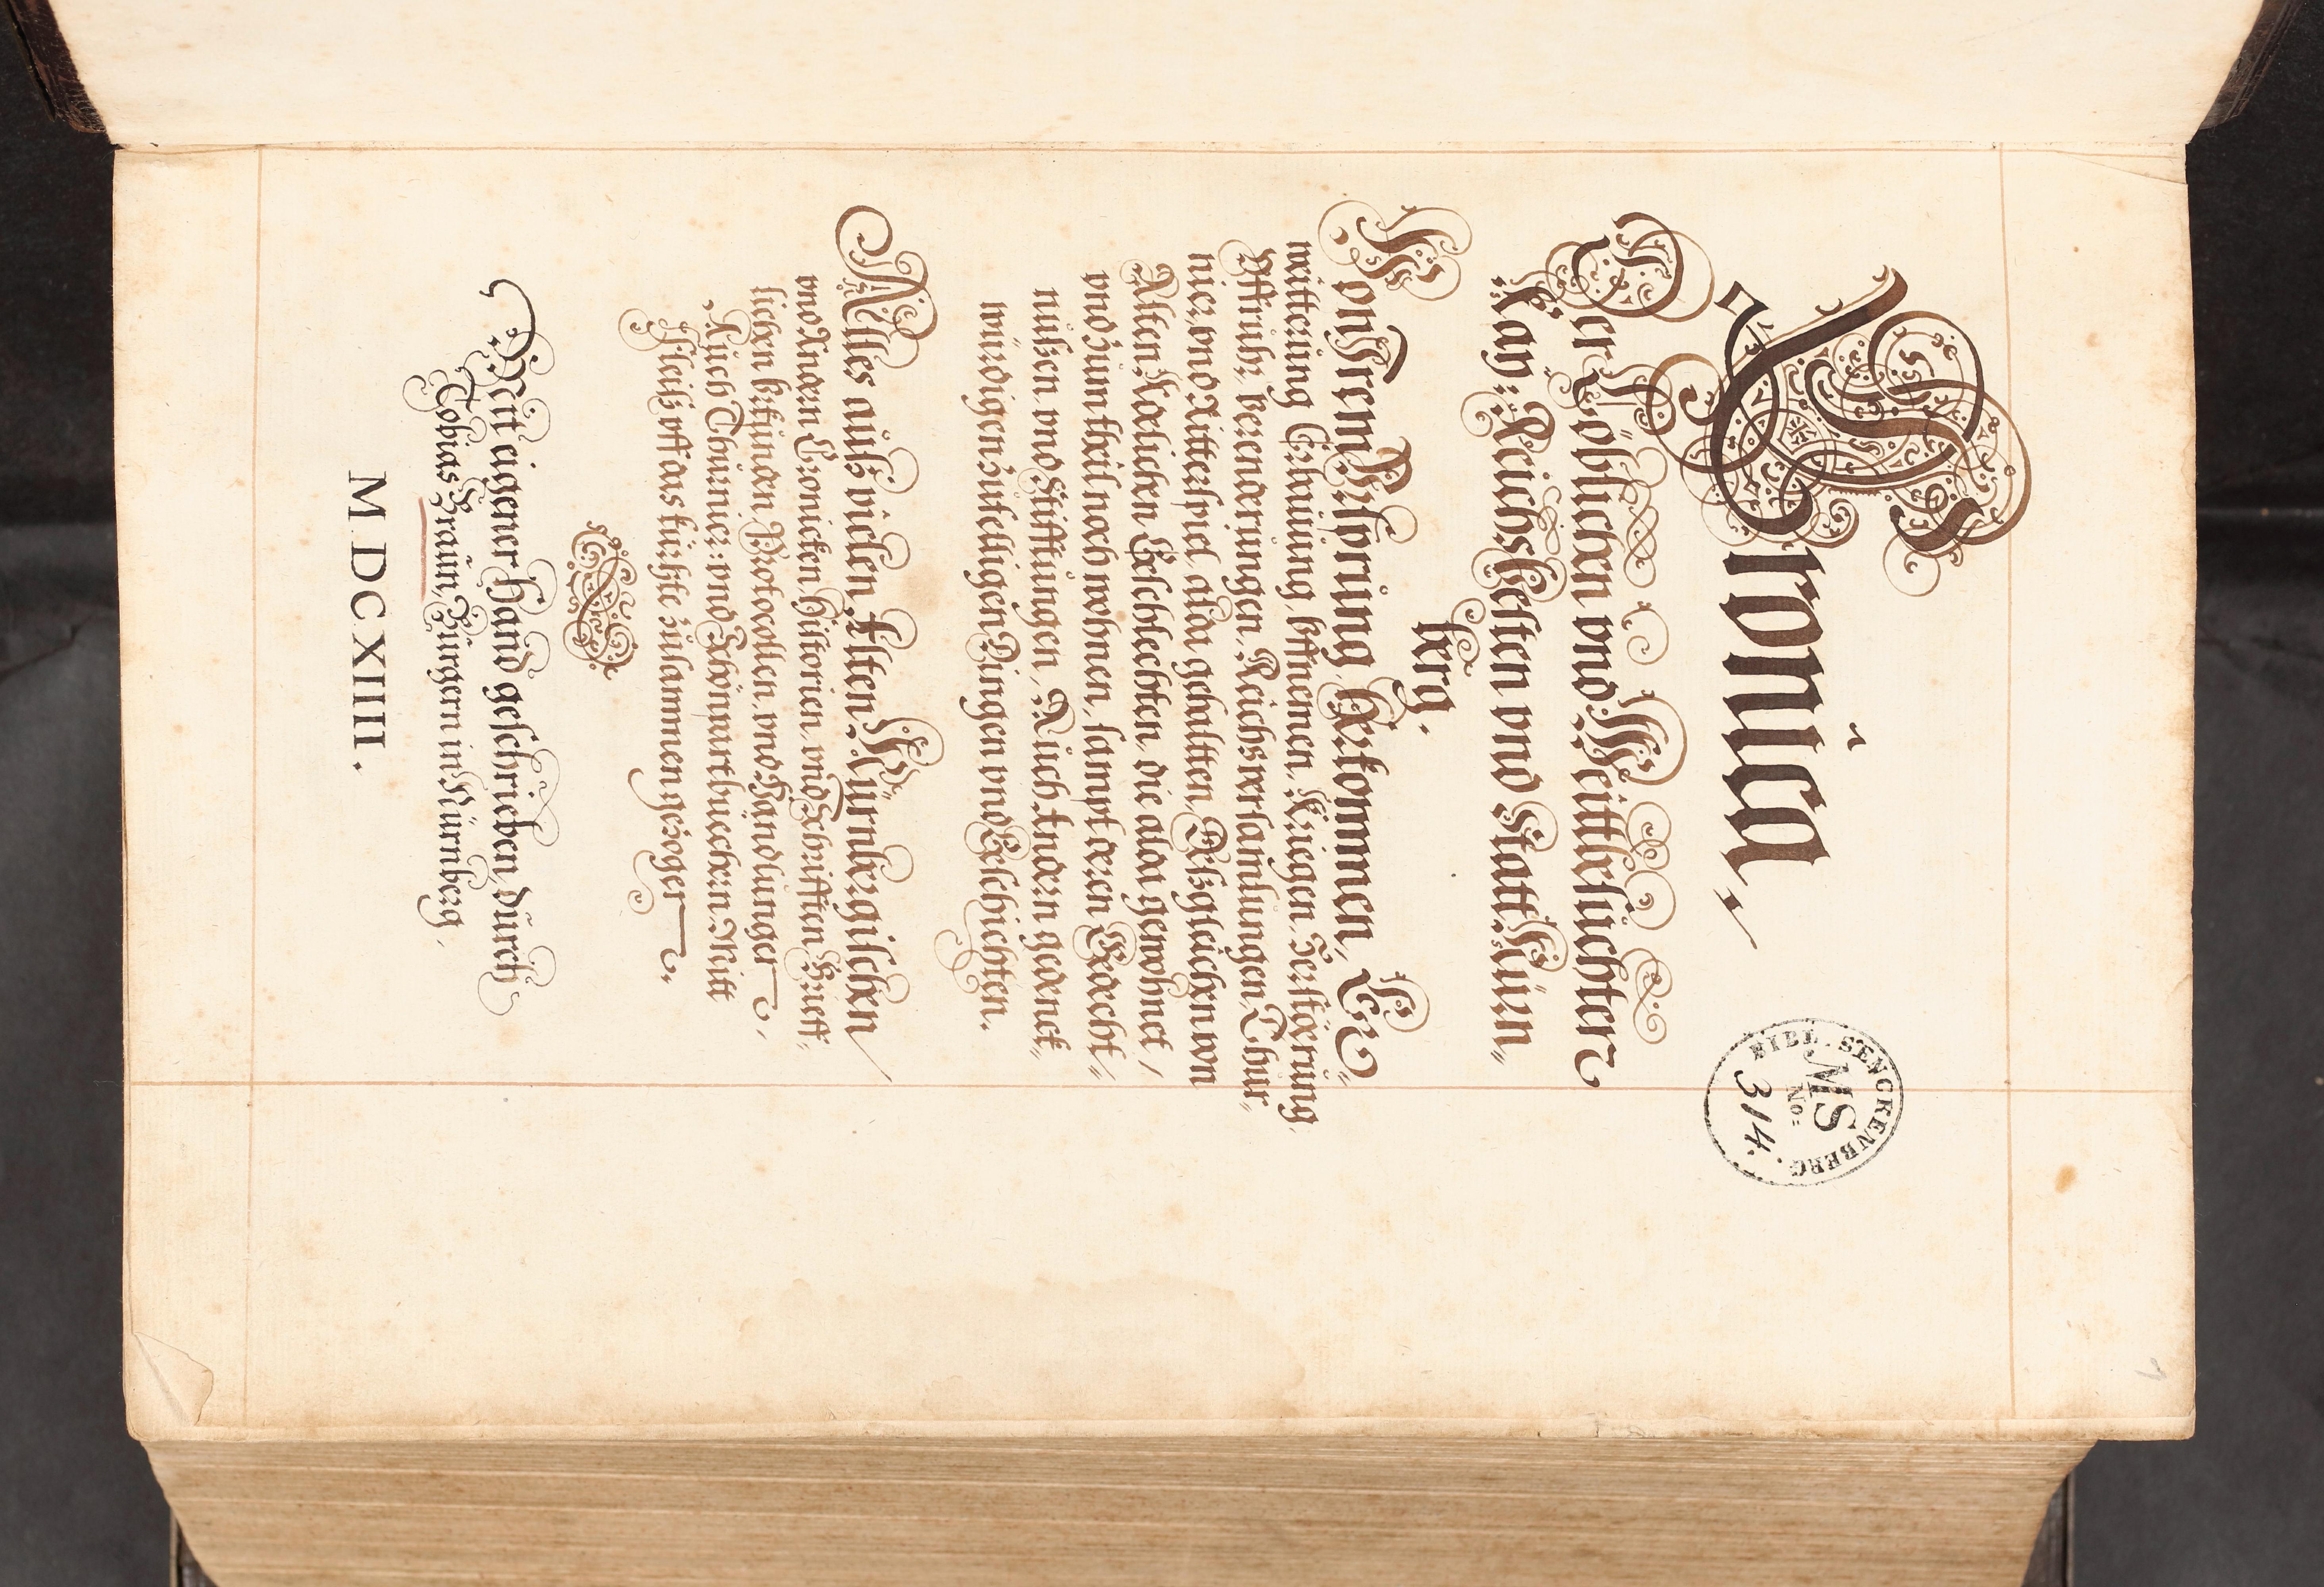 Cronica,
Der Löblichen vnd Weittberüchten
Kay: Reichs Vesten vnd Statt Nürn-
berg.
Von Irem Vrsprung, Herkommen, Er-
weitterung, Erbauung, Vffnemen, Kriegen, Zerstörung,
Vffruhr, verenderungen, Reichsversamlungen, Thur-
nier, vnd Ritterspiel, alda gehaltten, Deßgleichen von
Alten Adelichen Geschlechten, die alda gewohnet,
vnd zum theil noch wohnen, sampt deren Gedecht-
nußen vnd Stifftungen, Auch Andern gedenck-
würdigen zufelligen Dingen vnd Geschichten.
Alles auß vielen Alten Nürnbergischen
vnd Andern Cronicken, Historien, vnd Schrifften, Brieff-
lichen Vrkunden, Protocollen, vnd Handlungen,
Auch Thurnier: vnd Schönpartbüechern, Mitt
Fleiß vff das kürtzte zusammen gezogen.
Mit eigener Hand geschrieben, durch
Tobias Braun, Bürgern in Nürnberg.
M DC XIIII.
BIBL. SENCKENBERG.
MS
No:
314.
1